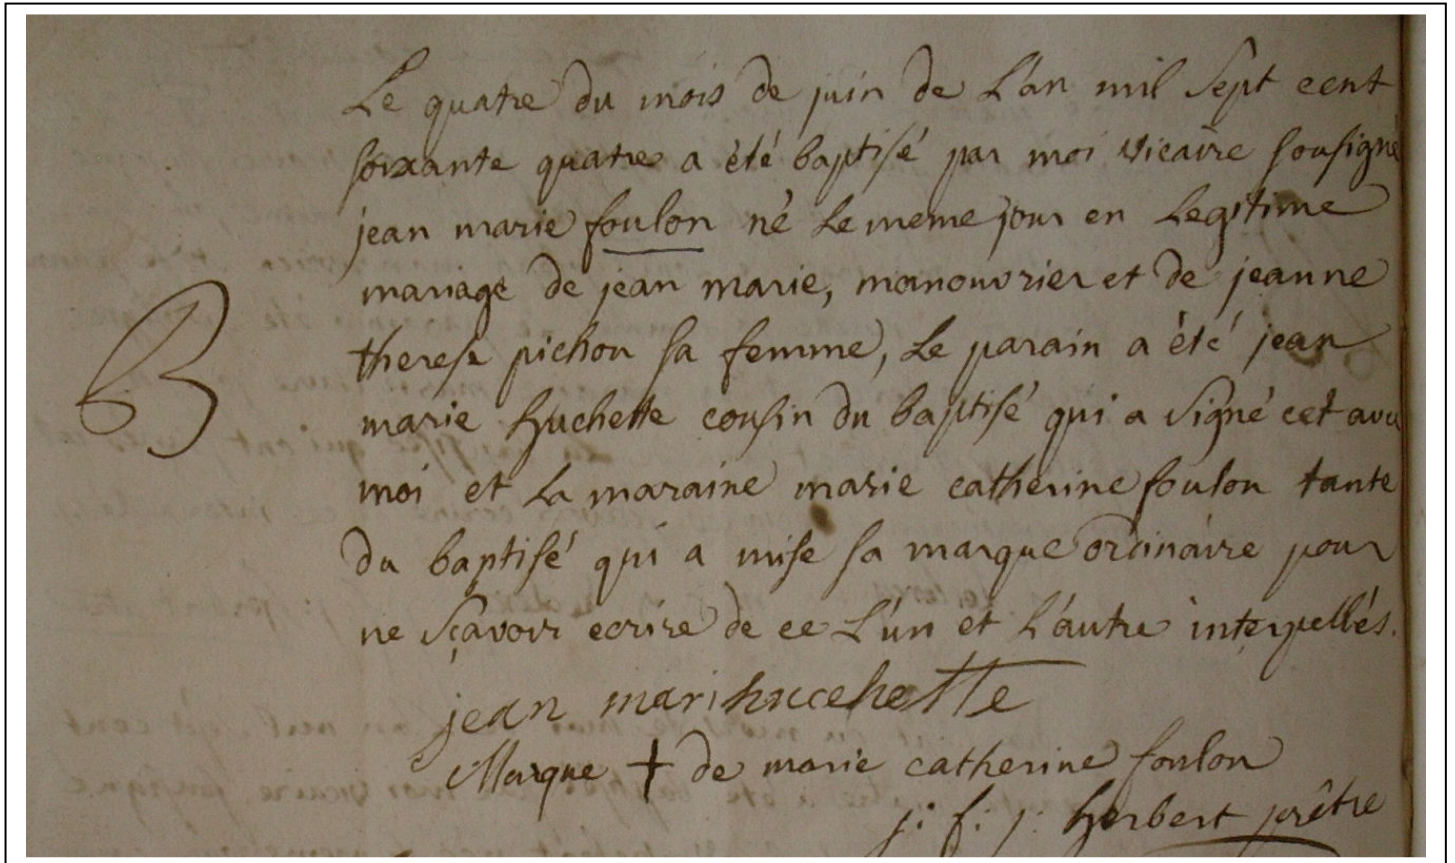 Le quatre du mois de juin de L'an mil sept cent
soixante quatre a été baptisé par moi vicaire sousigné
jean marie foulon né le meme jour en Legitime
mariage de jean marie, manouvrier et de jeanne
therese pichon sa femme, Le parain a été jean
marie huchette cousin du baptisé qui a signé cet avec
moi et La maraine marie catherine foulon tante
du baptisé qui a mise sa marque ordinaire pour
ne sçavoir ecrire de ce L'un et L'autre interpellés.
B
jean mari huccehette
Marque + de marie catherine foulon
j: f: j: herbert prêtre